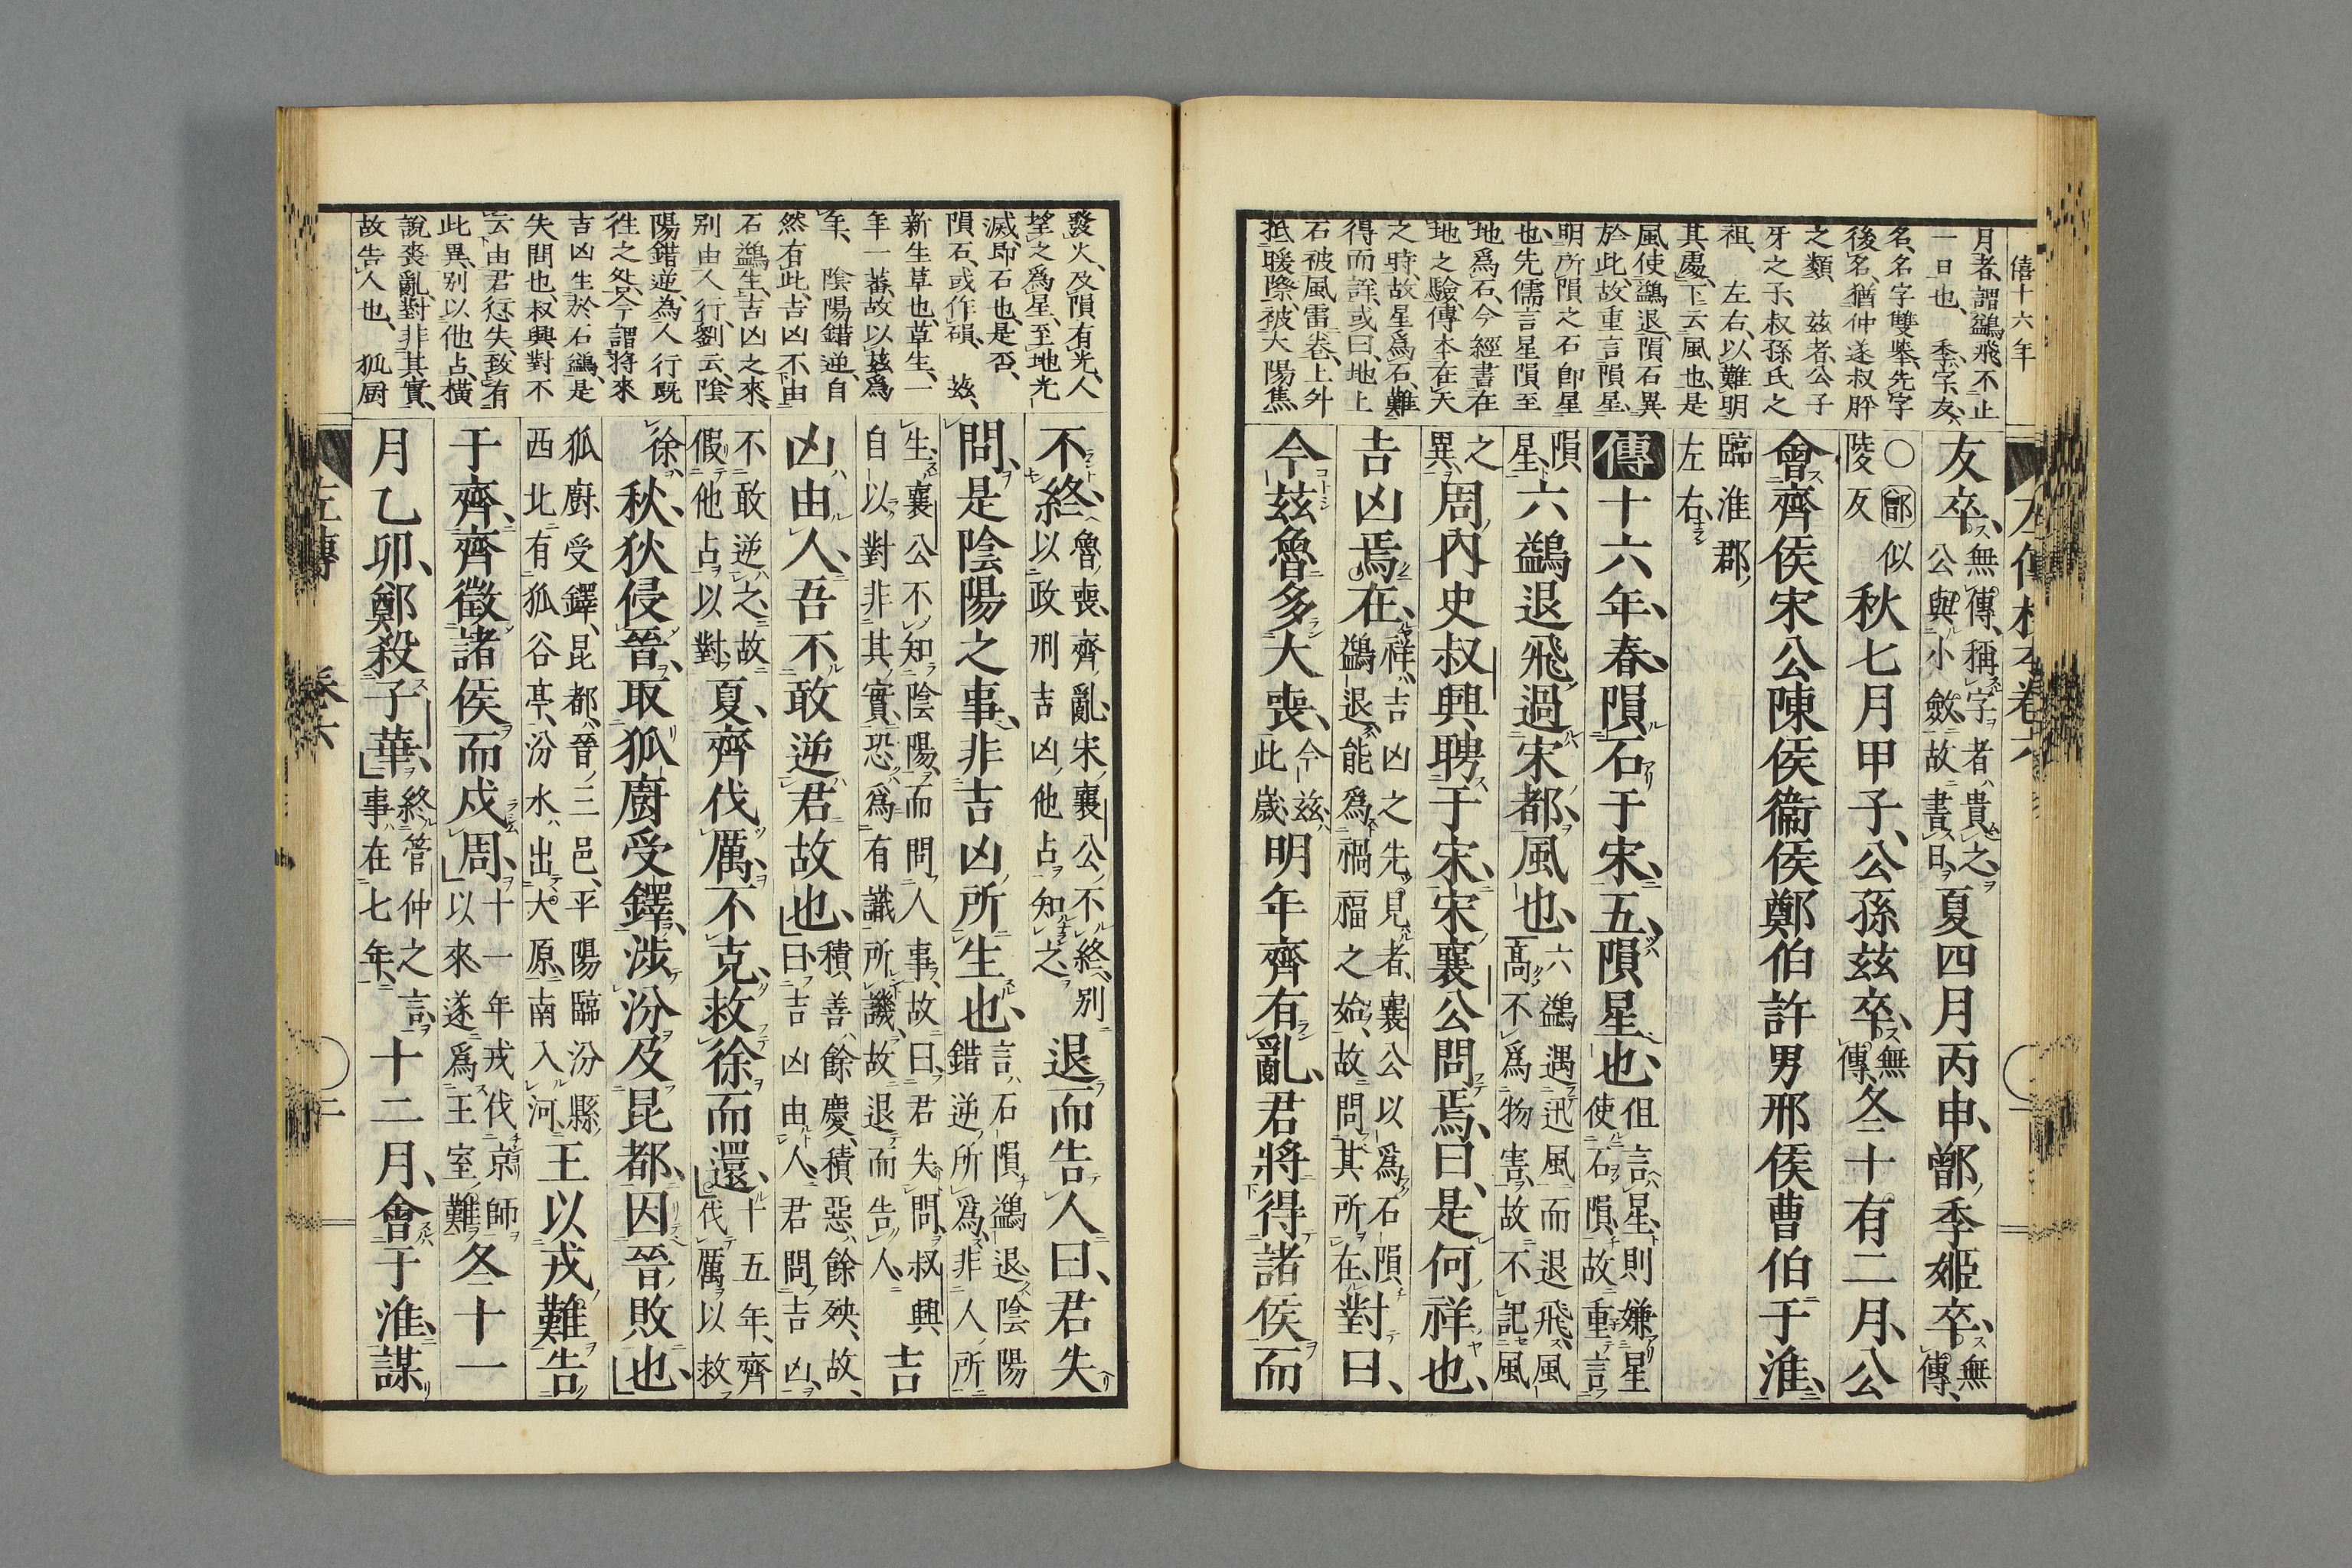 僖十六年
月者、謂鷁飛不止
一日也、季字、友、
名、名字雙舉、先字
後名、猶仲遂叔肸
之類 茲者、公子
牙之子、叔孫氏之
祖、左右、以難明
其處、下云風也、是
風使鷁退、隕石異
於此、故重言隕星、
明所隕之石卽星
也、先儒言星隕至
地爲石、今經書在
地之驗、傳本在天
之時、故星爲石、難
得而詳、或曰、地上
石被風雷卷、上外
抵暖際、被大陽焦
友卒、無傳、稱字者貴之、公與小斂、故書日、夏四月丙申、鄫季姬卒、無傳、
○鄫似陵反 秋七月甲子、公孫茲卒、無傳、冬十有二月、公
會齊侯宋公陳侯衞侯鄭伯許男邢侯曹伯于淮、
臨淮郡左右、
傳十六年、春、隕石于宋、五、隕星也、但言星、則嫌星使石隕、故重言
隕星、六鷁退飛過宋都、風也、六鷁遇迅風而退飛、風高不爲物害、故不記風
之異、周內史叔興聘于宋、宋襄公問焉、曰、是何祥也、
吉凶焉在、祥、吉凶之先見者、襄公以爲石隕鷁退、能爲禍福之始、故問其所在、對曰、
今茲魯多大喪、今茲此歲、明年齊有亂、君將得諸侯而
發火、及隕有光、人
望之爲星、至地光
滅、即石也、是否、
隕石、或作磒、茲、
新生草也、草生、一
年一蕃、故以茲爲
年、陰陽錯逆、自
然有此、吉凶不由
石鷁生、吉凶之來、
別由人行、劉云、陰
陽錯逆、為人行既
徃之咎、今謂將來
吉凶生於石鷁、是
失問也、叔興對不
云由君行失、致有
此異、別以他占、橫
說喪亂、對非其實、
故告人也、狐厨
不終、魯喪、齊亂、宋襄公不終、別以政刑吉凶他占知之、退而告人曰、君失
問、是陰陽之事、非吉凶所生也、言石隕鷁退、陰陽錯逆所爲、非人所
生、襄公不知陰陽、而問人事、故曰、君失問、叔興自以對非其實、恐爲有識所譏、故退而告人、吉
凶由人、吾不敢逆君故也、積善餘慶、積惡餘殃、故曰、吉凶由人、君問吉凶、
不敢逆之、故假他占以對、夏、齊伐厲、不克、救徐而還、十五年、齊伐厲以救
徐、秋、狄侵晉、取狐廚受鐸、涉汾及昆都、因晉敗也、
狐廚、受鐸、昆都、晉三邑、平陽臨汾縣西北有狐谷亭、汾水出大原、南入河、王以戎難告
于齊、齊徵諸侯而戍周、十一年戎伐京師以來、遂爲王室難、冬十一
月乙卯、鄭殺子華、終管仲之言、事在七年、十二月、會于淮、謀